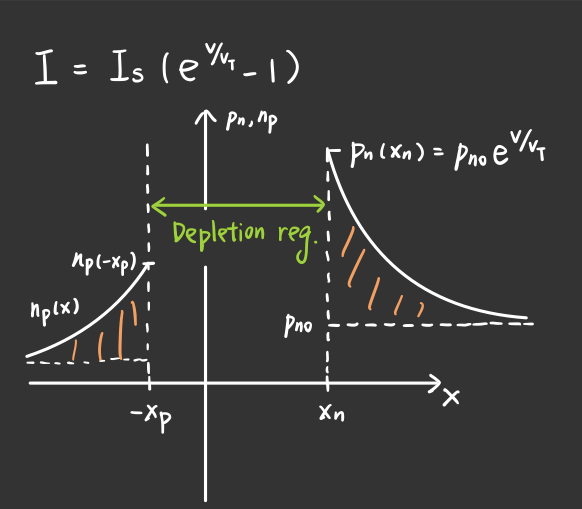 I = Is (e^V/VT - 1)
pn, np
pn(xn) = pno e^V/VT
Depletion reg.
np(-xp)
np(x)
pno
x
-xp
xn